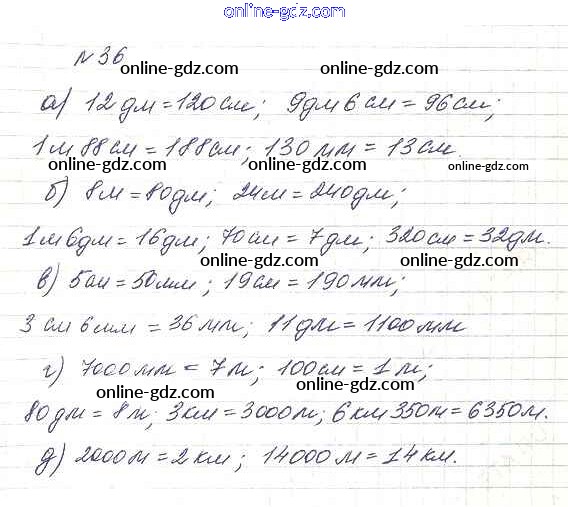 online-gdz.com
№ 36
online-gdz.com online-gdz.com
а) 12 дм = 120 см; 9 дм 6 см = 96 см;
1 м 88 см = 188 см; 130 мм = 13 см.
online-gdz.com online-gdz.com online-gdz.com
б) 8 м = 80 дм; 24 м = 240 дм;
1 м 6 дм = 16 дм; 70 см = 7 дм; 320 см = 32 дм.
online-gdz.com online-gdz.com
в) 5 см = 50 мм; 19 см = 190 мм;
3 см 6 мм = 36 мм; 11 дм = 1100 мм
online-gdz.com online-gdz.com
г) 7000 мм = 7 м; 100 см = 1 м;
online-gdz.com online-gdz.com
80 дм = 8 м; 3 км = 3000 м; 6 км 350 м = 6350 м.
online-gdz.com online-gdz.com
д) 2000 м = 2 км; 14000 м = 14 км.